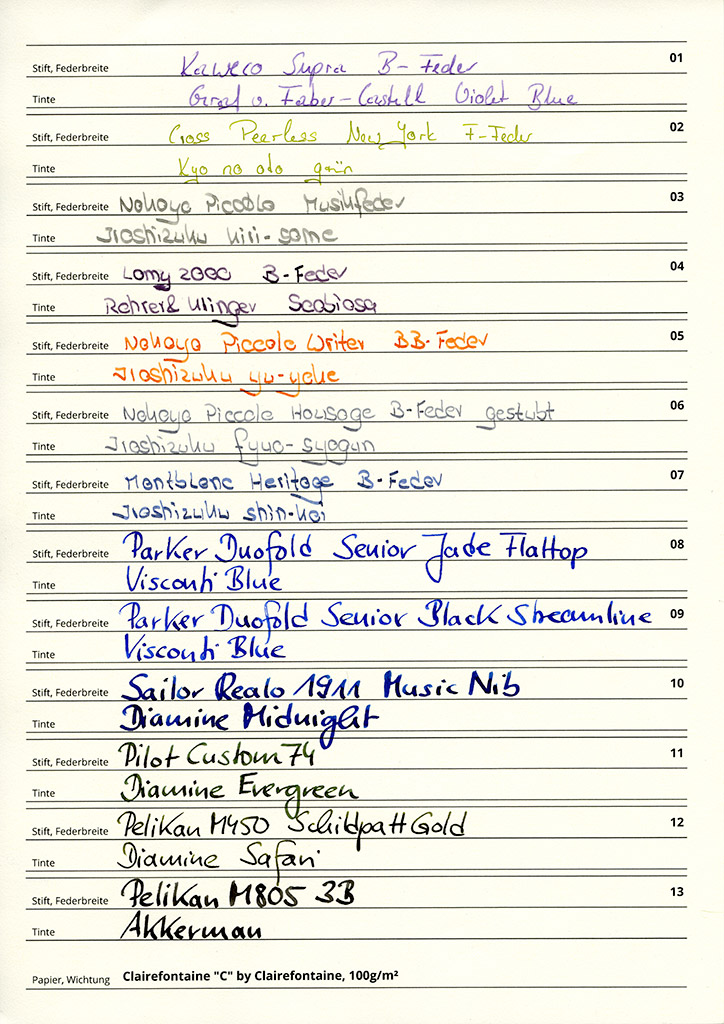 01
Stift, Federbreite Kaweco Supra B-Feder
Tinte Graf v. Faber-Castell Violet Blue
02
Stift, Federbreite Cross Peerless New York F-Feder
Tinte Kyo no oto grün
03
Stift, Federbreite Nakaya Piccolo Musikfeder
Tinte Iroshizuku kiri-same
04
Stift, Federbreite Lamy 2000 B-Feder
Tinte Rohrer & Klinger Scabiosa
05
Stift, Federbreite Nakaya Piccolo Writer BB-Feder
Tinte Iroshizuku yu-yake
06
Stift, Federbreite Nakaya Piccolo Housoge B-Feder gestubt
Tinte Iroshizuku fyuo-syogun
07
Stift, Federbreite Montblanc Heritage B-Feder
Tinte Iroshizuku shin-kai
08
Stift, Federbreite Parker Duofold Senior Jade Flattop
Tinte Visconti Blue
09
Stift, Federbreite Parker Duofold Senior Black Streamline
Tinte Visconti Blue
10
Stift, Federbreite Sailor Realo 1911 Music Nib
Tinte Diamine Midnight
11
Stift, Federbreite Pilot Custom 74
Tinte Diamine Evergreen
12
Stift, Federbreite Pelikan M450 Schildpatt Gold
Tinte Diamine Safari
13
Stift, Federbreite Pelikan M805 3B
Tinte Akkerman
Papier, Wichtung Clairefontaine "C" by Clairefontaine, 100g/m²